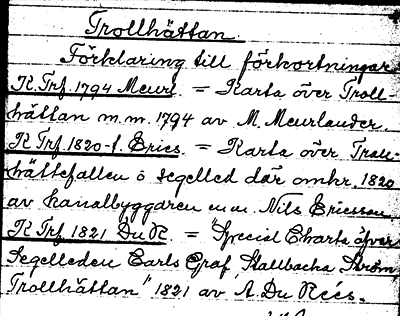 Trollhättan.
Förklaring till förkortningar
K. Trf. 1794 Meurl. = Karta över Troll-
hättan m.m. 1794 av M. Meurlander.
K. Trf. 1820-t. Erics. = Karta över Troll-
hättefallen o segelled där omkr. 1820
av kanalbyggaren m.m. Nils Ericsson.
K. Trf. 1821 Du R. = "Special Charta öfver
Segelleden Carls Graf, Stallbacka Ström,
Trollhättan" 1821 av A. Du Rées.